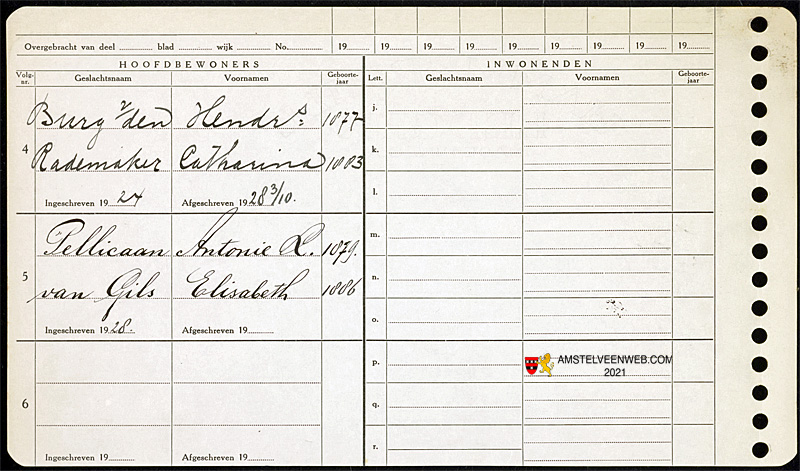 Overgebracht van deel ............ blad ............ wijk ............ No............. 19...... 19...... 19...... 19...... 19...... 19...... 19...... 19...... 19......
HOOFDBEWONERS INWONENDEN
Volg-nr. Geslachtsnaam Voornamen Geboorte-jaar Lett. Geslachtsnaam Voornamen Geboorte-jaar
Burg v/den Hendrs: 1877 j.
4
Rademaker Catharina 1883 k.
Ingeschreven 1924 Afgeschreven 1928 3/10. l.
Pellicaan Antonie L. 1879. m.
5
van Gils Elisabeth 1886 n.
Ingeschreven 1928. Afgeschreven 19......... o.
p.
AMSTELVEENWEB.COM
2021
6
q.
Ingeschreven 19......... Afgeschreven 19......... r.